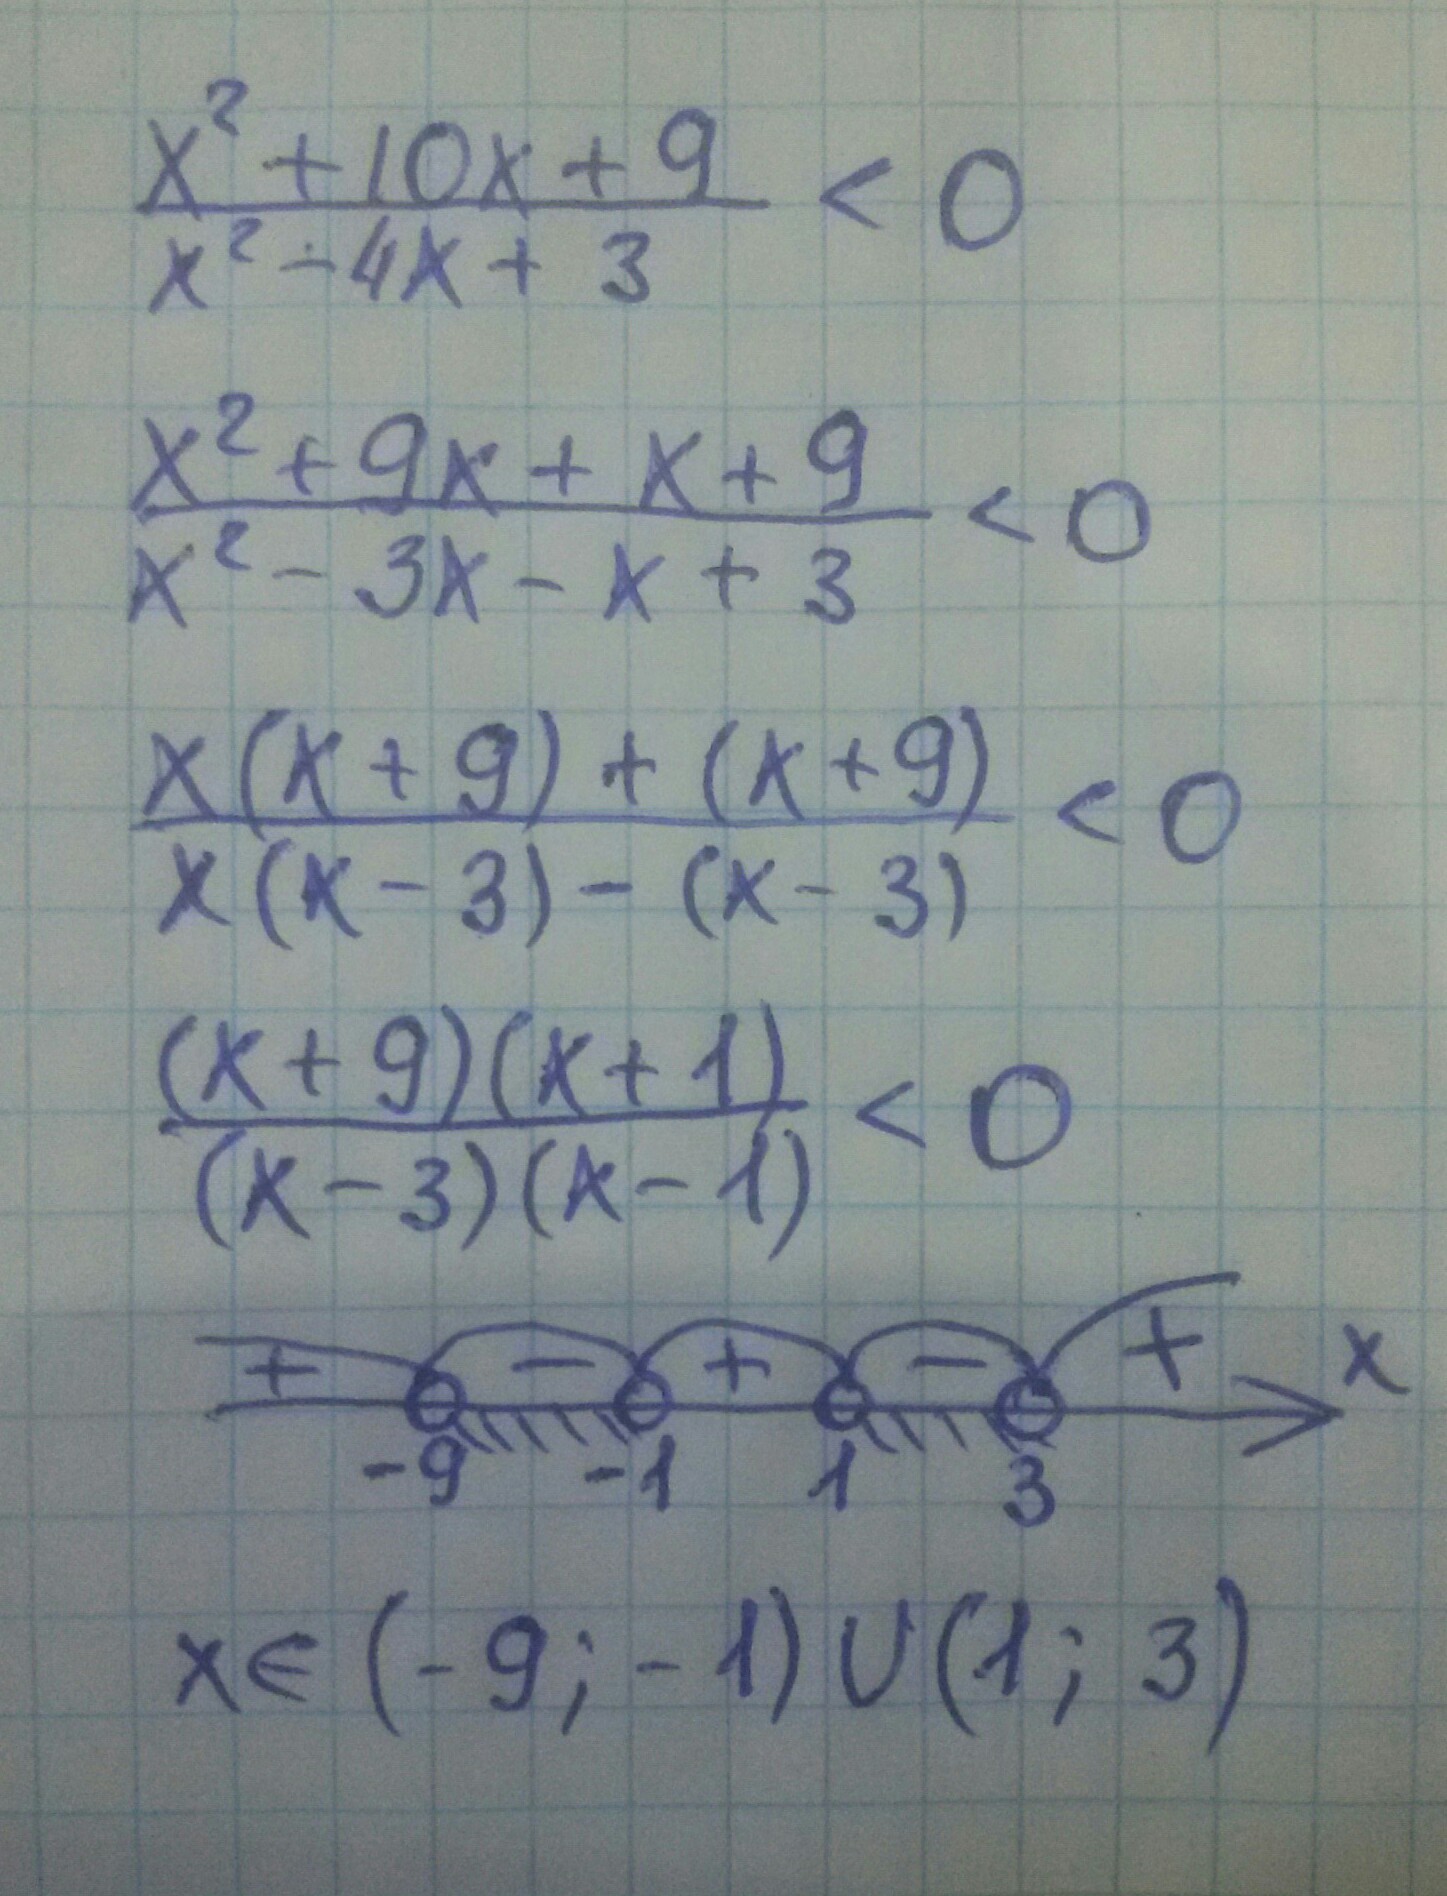 x² + 10x + 9 / x² - 4x + 3 < 0
x² + 9x + x + 9 / x² - 3x - x + 3 < 0
x(x + 9) + (x + 9) / x(x - 3) - (x - 3) < 0
(x + 9)(x + 1) / (x - 3)(x - 1) < 0
+ - + - + x
-9 -1 1 3
x ∈ (-9; -1) ∪ (1; 3)